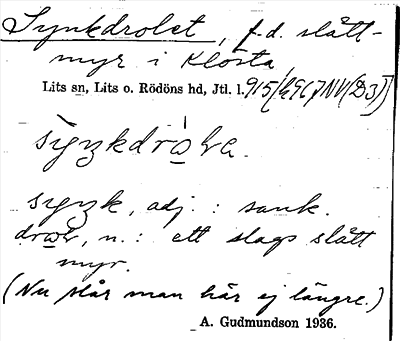 Synkdrolet, f.d. slått-
myr i Klösta,
Lits sn, Lits o. Rödöns hd, Jtl. l.
adj. : sank.
n. : ett slags slått
myr.
(Nu slår man här ej längre.)
A. Gudmundson 1936.